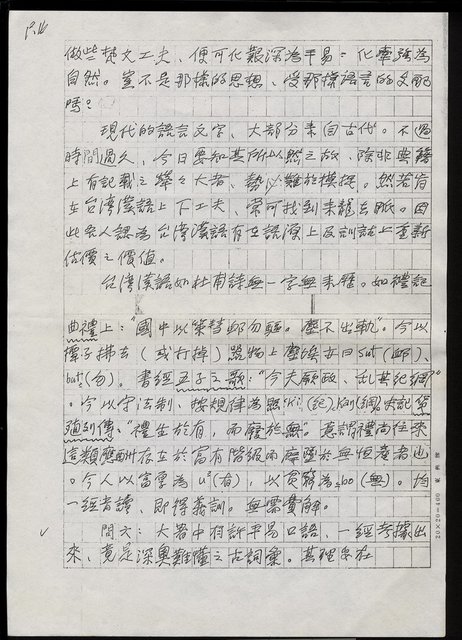 P.16
做些梵文工夫、便可化艱深為平易、化牽強為
自然。豈不是那樣的思想、受那樣語言的支配
嗎？
現代的語言文字、大部分来自古代。不過
時間過久、今日要知其所以然之故、除非典籍
上有記載之犖々大者、勢必難於摸捉。然若肯
在台湾漢語上下工夫、常可找到来龍去脈。因
此吾人認為台湾漢語有在語源上及訓詁上重新
估價之價值。
台湾漢語如杜甫詩無一字無来歷。如禮記
曲禮上："國中以策彗卹勿驅。塵不出軌"。今以
撢子拂去（或打掉）器物上塵埃亦曰sut（卹）、
but（勿）。書經五子之歌："今失厥道、乱其紀綱"
。今以守法制、按規律為照"Ki（紀）Kong（綱）。史記貨
殖列傳、"禮生於有、而廢於無"。意謂禮尚往来
這類應酬存在於富有階級而廢墮於無恒產者也
。今人以富裕為u（有）、以貧窮為bo（無）。均
一經肯讀、即得義訓。無需費解。
問六：大著中有許平易口語、一經考據出
来、竟是深奥難懂之古詞彙。其理安在
20×20=400